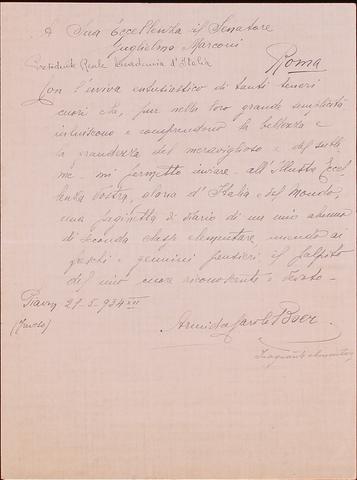 A Sua Eccellenza il Senatore
Guglielmo Marconi
Presidente Reale Accademia d'Italia
Roma
Con l'evviva entusiastico di tanti teneri
cuori che, pur nella loro grande semplicità
intuiscono e comprendono la bellezza e
la grandezza del meraviglioso e del subli
me - mi permetto inviare all'Illustre Eccel
lenza Vostra, gloria d'Italia e del Mondo,
una paginetta di diario di un mio alunno
di seconda classe elementare, unendo ai
freschi e genuini pensieri, il palpito
del mio cuore riconoscente e devoto -
21-5-934 XII
Armida
Insegnante elementare